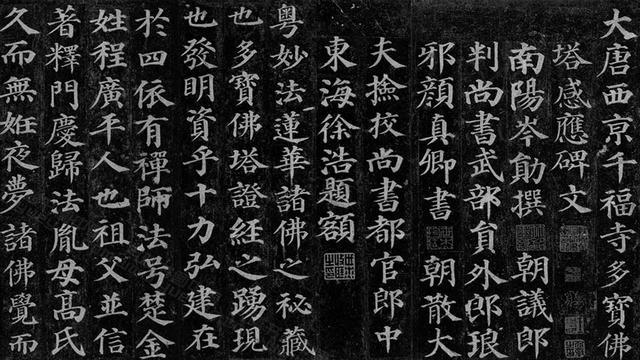 大唐西京千福寺多寶佛
塔感應碑文
南陽岑勛撰 朝議郎
判尚書武部員外郎琅
邪顏真卿書 朝散大
夫撿挍尚書都官郎中
東海徐浩題額
粵妙法蓮華諸佛之祕藏
也多寶佛塔證經之踴現
也發明資乎十力弘建在
於四依有禪師法号楚金
姓程廣平人也祖父並信
著釋門慶歸法胤母高氏
久而無妊夜夢諸佛覺而